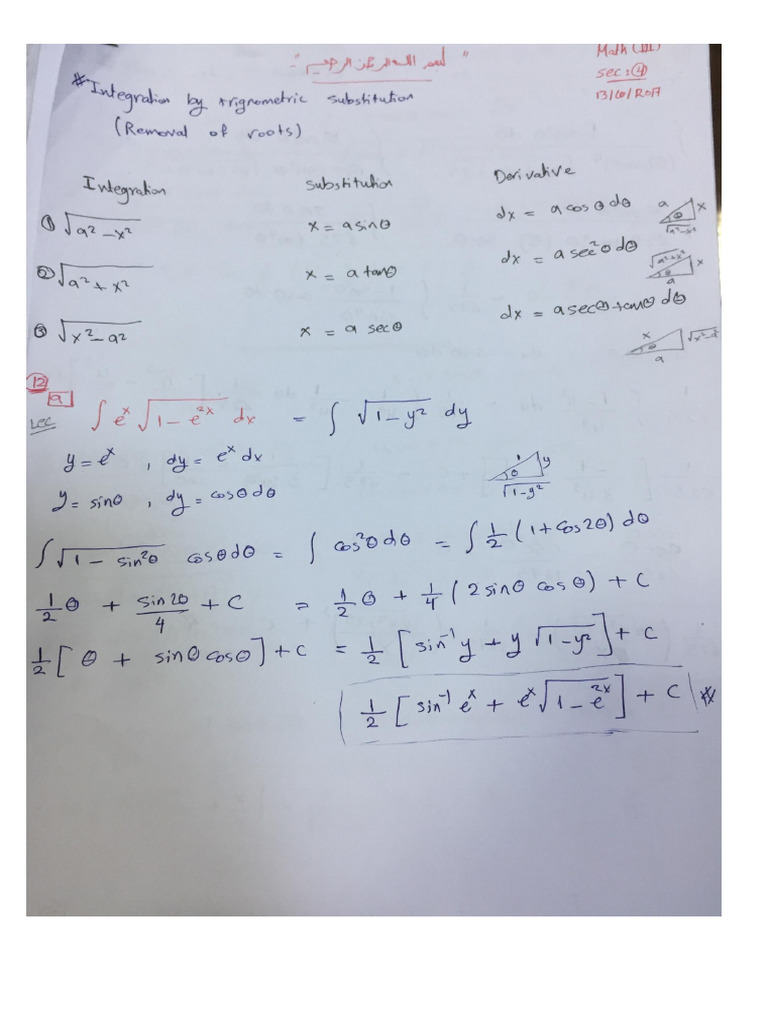 " بسم الله الرحمن الرحيم "
Math (III)
sec: (4)
* Integration by trignometric substitution
(Removal of roots)
Integration substitution Derivative
① √(a² - x²) x = a sinθ dx = a cosθ dθ a x θ √(a² - x²)
② √(a² + x²) x = a tanθ dx = a sec²θ dθ √(a² + x²) x θ a
③ √(x² - a²) x = a secθ dx = a secθ tanθ dθ x √(x² - a²) θ a
⑫ a
Lec ∫ eˣ √(1 - e²ˣ) dx = ∫ √(1 - y²) dy
y = eˣ , dy = eˣ dx 1 y θ √(1 - y²)
y = sinθ , dy = cosθ dθ
∫ √(1 - sin²θ) cosθ dθ = ∫ cos²θ dθ = ∫ 1/2 (1 + cos2θ) dθ
1/2 θ + sin2θ/4 + C = 1/2 θ + 1/4 (2 sinθ cosθ) + C
1/2 [θ + sinθ cosθ] + C = 1/2 [sin⁻¹y + y √(1 - y²)] + C
1/2 [sin⁻¹eˣ + eˣ √(1 - e²ˣ)] + C #